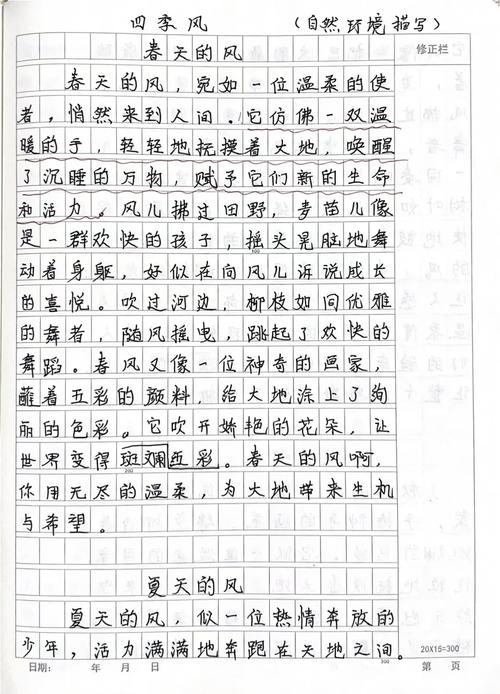 四季风 （自然环境描写）
修正栏
春天的风
春天的风，宛如一位温柔的使
者，悄然来到人间。它仿佛一双温
暖的手，轻轻地抚摸着大地，唤醒
了沉睡的万物，赋予它们新的生命
和活力。风儿拂过田野，麦苗儿像
是一群欢快的孩子，摇头晃脑地舞
动着身躯，好似在向风儿诉说成长
的喜悦。吹过河边，柳枝如同优雅
的舞者，随风摇曳，跳起了欢快的
舞蹈。春风又像一位神奇的画家，
蘸着五彩的颜料，给大地涂上了绚
丽的色彩。它吹开娇艳的花朵，让
世界变得斑斓五彩。春天的风啊，
你用无尽的温柔，为大地带来生机
与希望。
夏天的风
夏天的风，似一位热情奔放的
少年，活力满满地奔跑在天地之间。
20X15=300
日期： 年 月 日 第 页